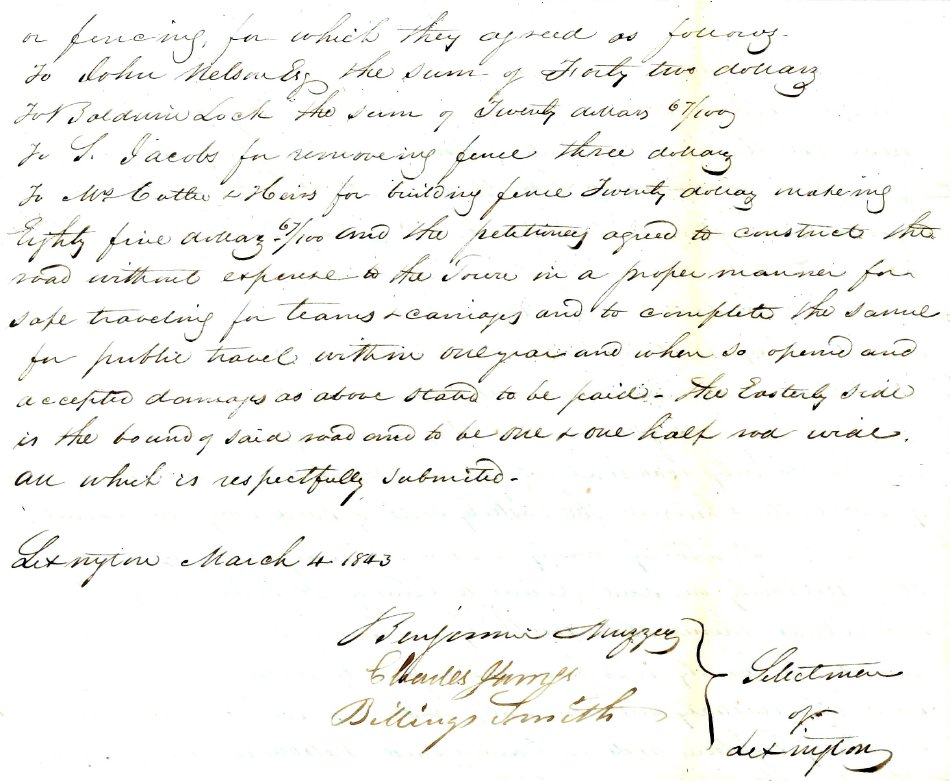 or fencing, for which they agreed as follows.
To John Nelson Esq the sum of Forty two dollars
To Baldwin Lock the sum of Twenty dollars 67/100
To S. Jacobs for removeing fence three dollars
To Mrs Cutler & Heirs for building fence Twenty dollars makeing
Eighty five dollars 67/100 and the petitioners agreed to construct the
road without expense to the Town in a proper manner for
safe traveling for teams & carriages and to complete the same
for public travel within one year and when so opened and
accepted damages as above stated to be paid - the Easterly side
is the bound of said road and to be one & one half rod wide.
all which is respectfully submitted -
Lexington March 4 1843
Benjamin Muzzey
Charles
Billings Smith
Selectmen
of
Lexington